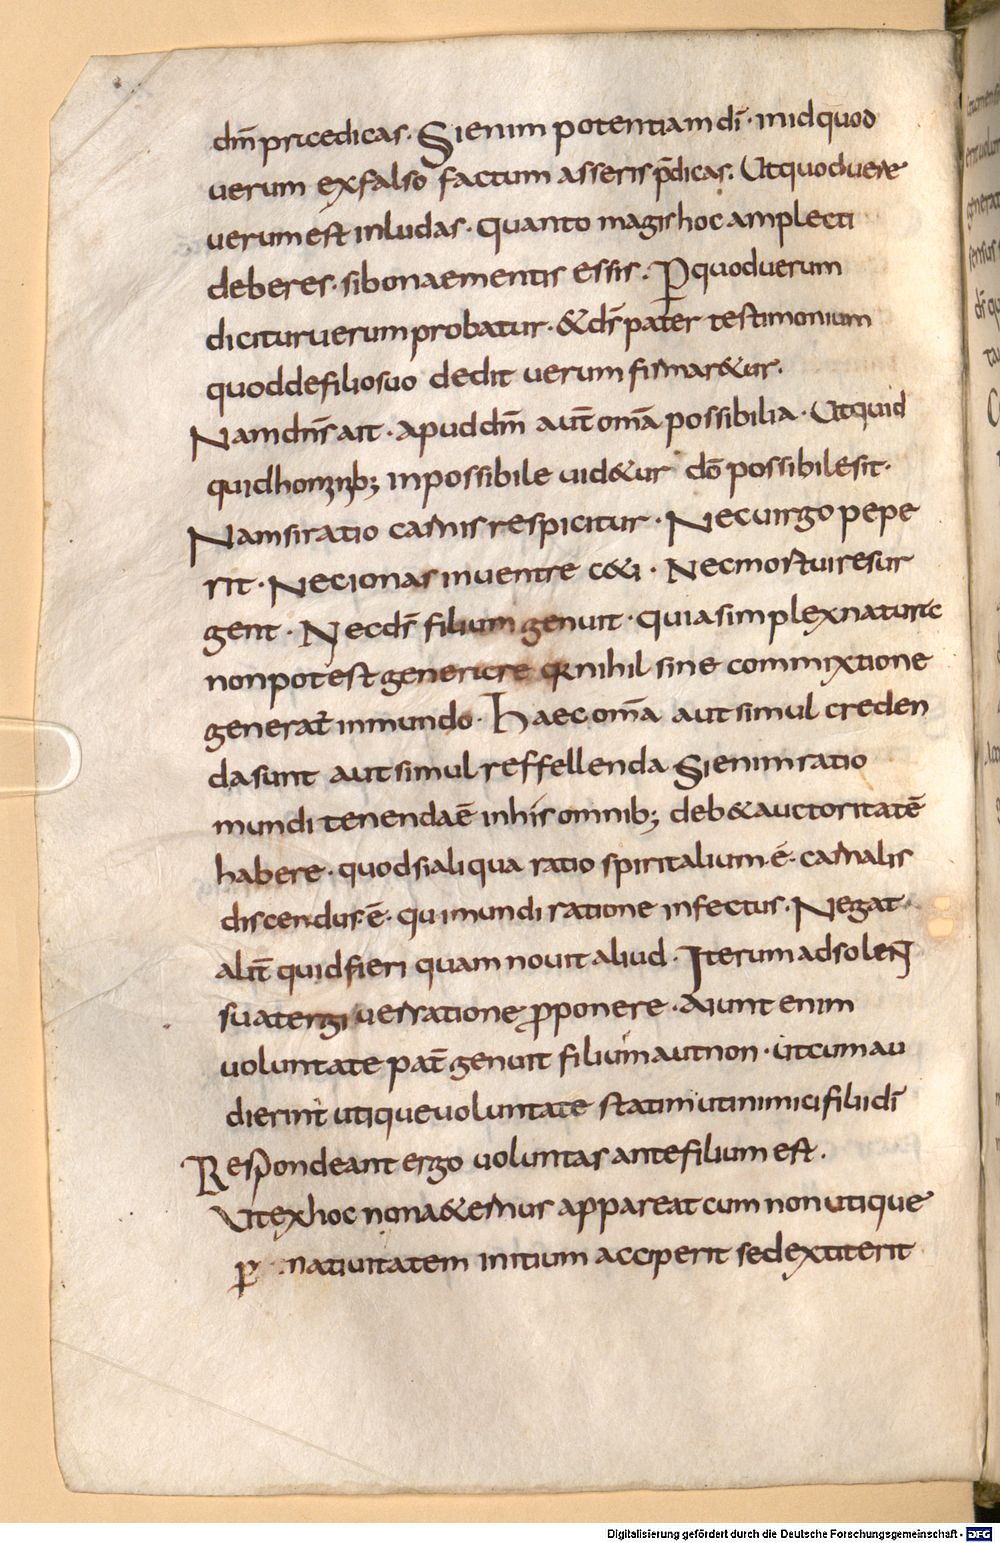 dm̄ praedicas. Si enim potentiam dī. in id quod
uerum ex falso factum asseris p̄dicas. Ut quod uere
uerum est inludas. quanto magis hoc amplecti
deberes. si bonae mentis essis. P quod uerum
dicitur uerum probatur. & ds̄ pater testimonium
quod de filio suo dedit uerum firmar&ur.
Nam dn̄s ait. apud dm̄ aut̄ omā possibilia. Ut quid
quid hominib; inpossibile uid&ur dō possibile sit.
Nam si ratio carnis respicitur. Nec uirgo pepe
rit. Nec ionas in uentre c&i. Nec mortui resur
gent. Nec ds̄ filium genuit. quia simplex natura
non potest generare qR nihil sine commixtione
generat̄ in mundo. Haec omā aut simul creden
da sunt aut simul reffellenda Si enim ratio
mundi tenenda ē in his omnib; deb& auctoritatē
habere. quod si aliqua ratio spiritalium ē. carnalis
discendus ē. qui mundi ratione infectus. Negat
alit̄ quid fieri quam nouit aliud. Iterum ad solen
sua tergiuersatione p̱ponere. Aiunt enim
uoluntate pat̄ genuit filium aut non. ut cum au
dierint utique uoluntate statim ut inimici filii dī
Respondeant ergo uoluntas ante filium est.
Ut ex hoc non a&ernus appareat cum non utique
p̱ natiuitatem initium acciperit sed extiterit
Digitalisierung gefördert durch die Deutsche Forschungsgemeinschaft - DFG